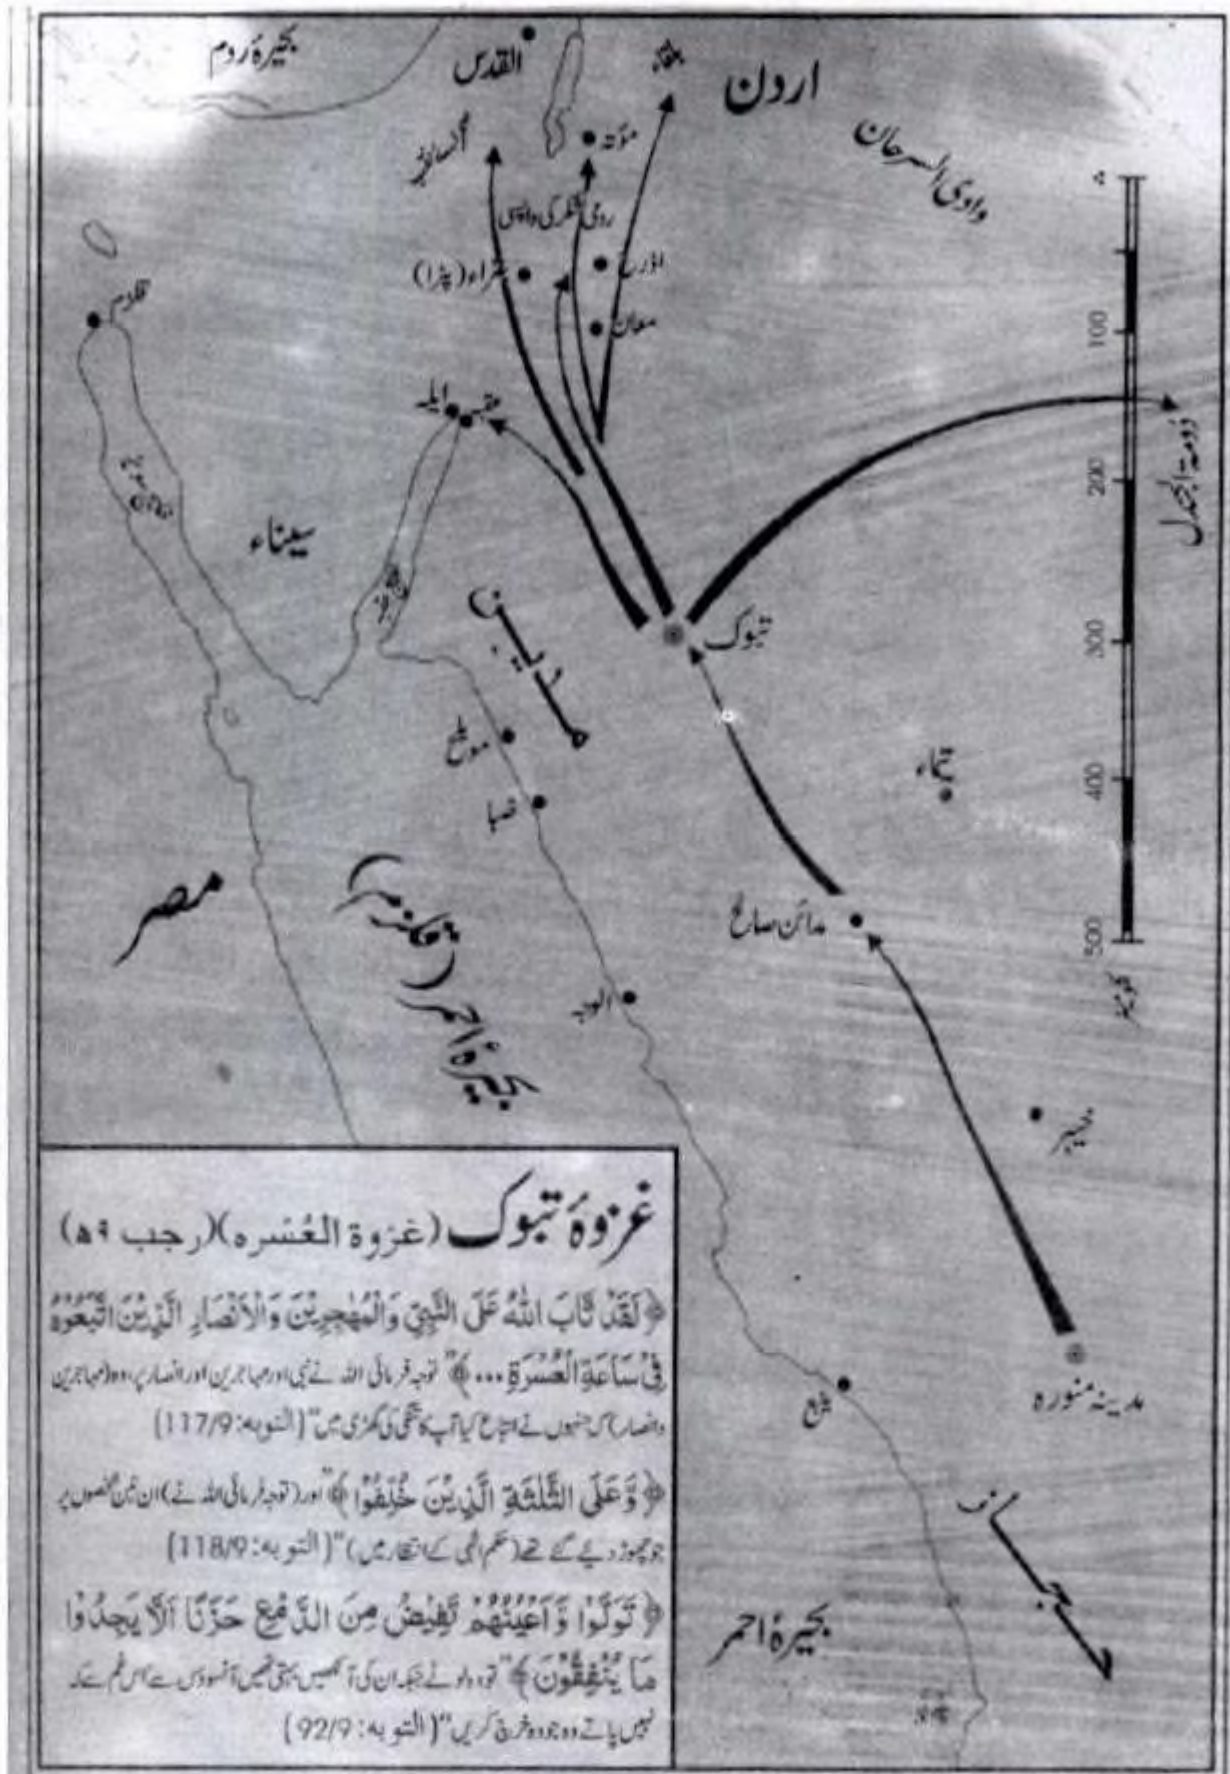 بحیرۂ روم
القدس
بلقاء
اردن
موتہ
وادی السرحان
رومی لشکر کی واپسی
بتراء (پٹرا)
اذرح
معان
قلزم
ایلہ
سیناء
دومۃ الجندل
100
200
300
400
500
تبوک
مدین
مویلح
ضبا
تیماء
مصر
بحیرۂ احمر (قلزم)
مدائن صالح
الوجہ
کلومیٹر
خیبر
مدینہ منورہ
ینبع
حجاز
بحیرۂ احمر
غزوۂ تبوک (غزوۃ العُسْرہ)(رجب ۹ھ)
﴿لَقَدْ تَّابَ اللّٰهُ عَلَى النَّبِيِّ وَالْمُهٰجِرِيْنَ وَالْاَنْصَارِ الَّذِيْنَ اتَّبَعُوْهُ
فِيْ سَاعَةِ الْعُسْرَةِ...﴾ "توجہ فرمائی اللہ نے نبی اور مہاجرین اور انصار پر، وہ (مہاجرین
وانصار) کہ جنہوں نے اتباع کیا آپ کا تنگی کی گھڑی میں" (التوبہ: 117/9)
﴿وَّعَلَى الثَّلٰثَةِ الَّذِيْنَ خُلِّفُوْا﴾ "اور (توجہ فرمائی اللہ نے) ان تین شخصوں پر
جو چھوڑ دیے گئے تھے (حکم الٰہی کے انتظار میں)" (التوبہ: 118/9)
﴿تَوَلَّوْا وَّاَعْيُنُهُمْ تَفِيْضُ مِنَ الدَّمْعِ حَزَنًا اَلَّا يَجِدُوْا
مَا يُنْفِقُوْنَ﴾ "تو وہ لوٹے جبکہ ان کی آنکھیں بہتی تھیں آنسوؤں سے اس غم سے کہ
نہیں پاتے وہ جو وہ خرچ کریں" (التوبہ: 92/9)